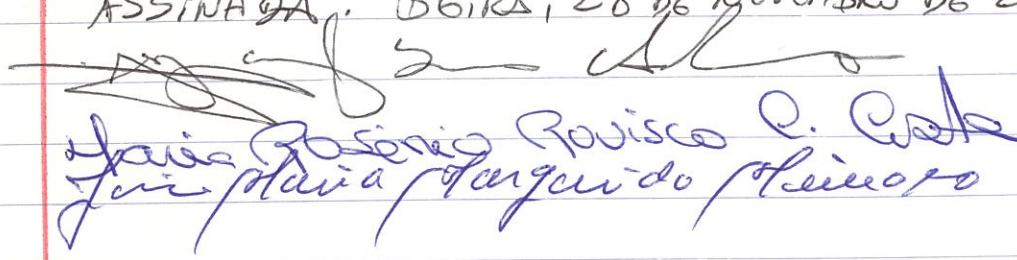 ASSINADA. BEIRÃ, 20 DE NOVEMBRO DE 2
Maria Rosário Rovisco C. Costa
José Maria Margarido Mimoso